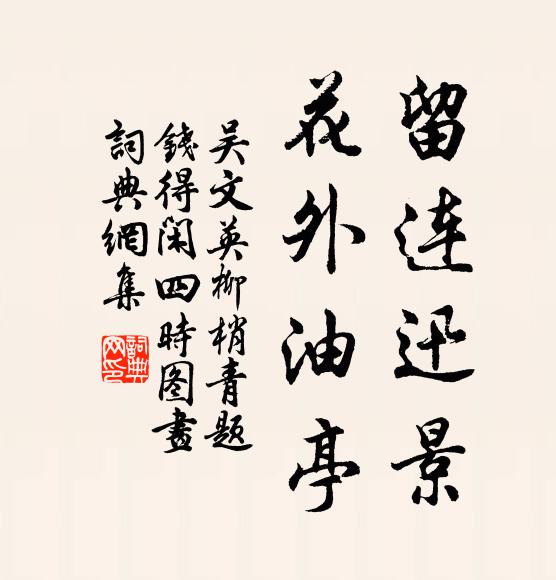 留連迅景
花外油亭
吴文英柳梢青題
錢得閑四時图畫
詞典網集
詞典網印